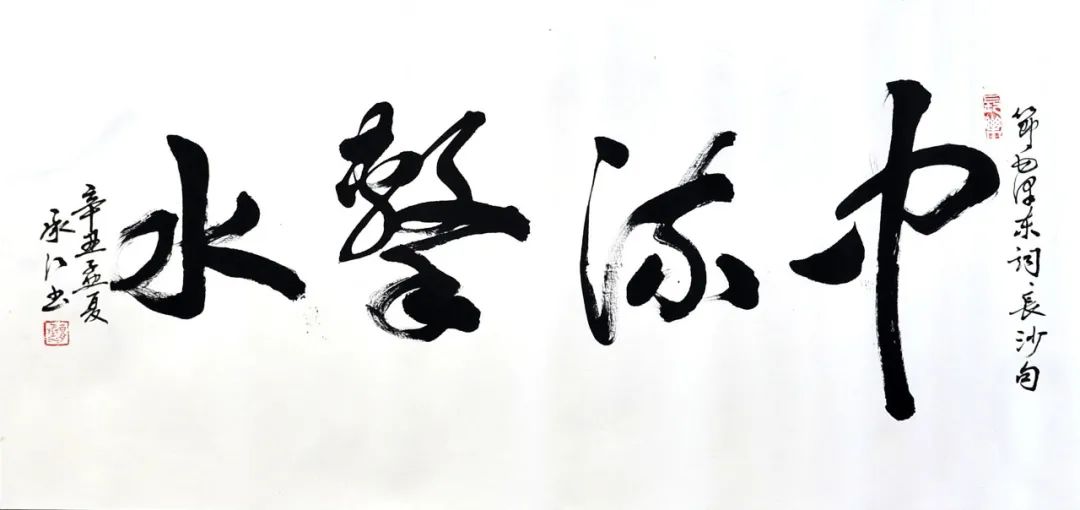 節毛泽東词長沙句
中流擊水
辛丑孟夏
承江书